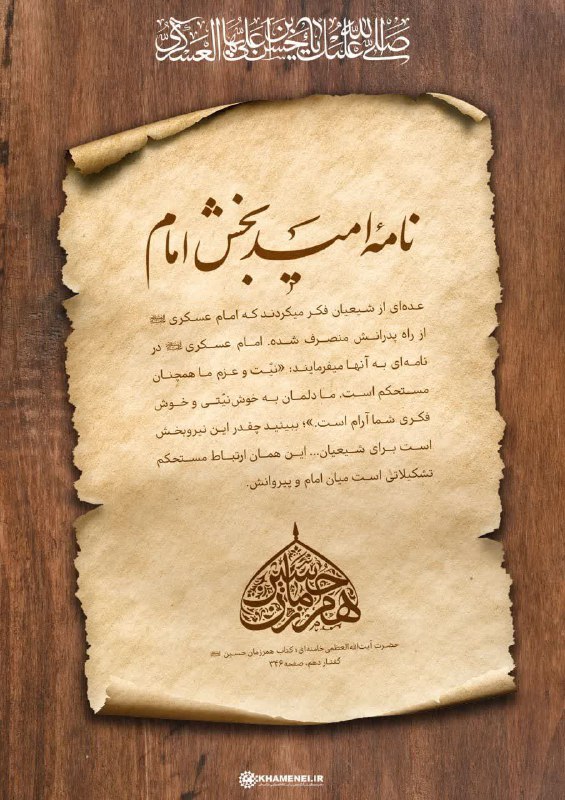 صلی الله علیک یا حسن بن علی ایها العسکری
نامهٔ امیدبخش امام
عده‌ای از شیعیان فکر میکردند که امام عسکری ﷷ
از راه پدرانش منصرف شده. امام عسکری در
نامه‌ای به آنها میفرمایند: «نیّت و عزم ما همچنان
مستحکم است. ما دلمان به خوش نیّتی و خوش
فکری شما آرام است.»؛ ببینید چقدر این نیروبخش
است برای شیعیان... این همان ارتباط مستحکم
تشکیلاتی است میان امام و پیروانش.
همرزمان حسین
حضرت آیت‌الله‌العظمی خامنه‌ای؛ کتاب همرزمان حسین
گفتار دهم، صفحه ۳۴۶
KHAMENEI.IR